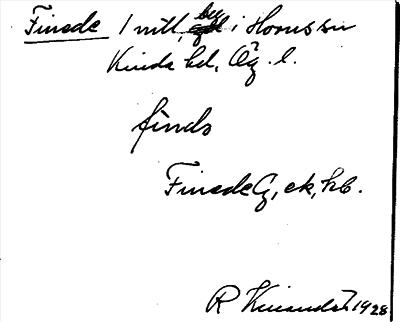 Finede 1 mtl, beb i Horns sn
Kinda hd, Ög. l.
finds
Finede G, ek, hb.
R 1928